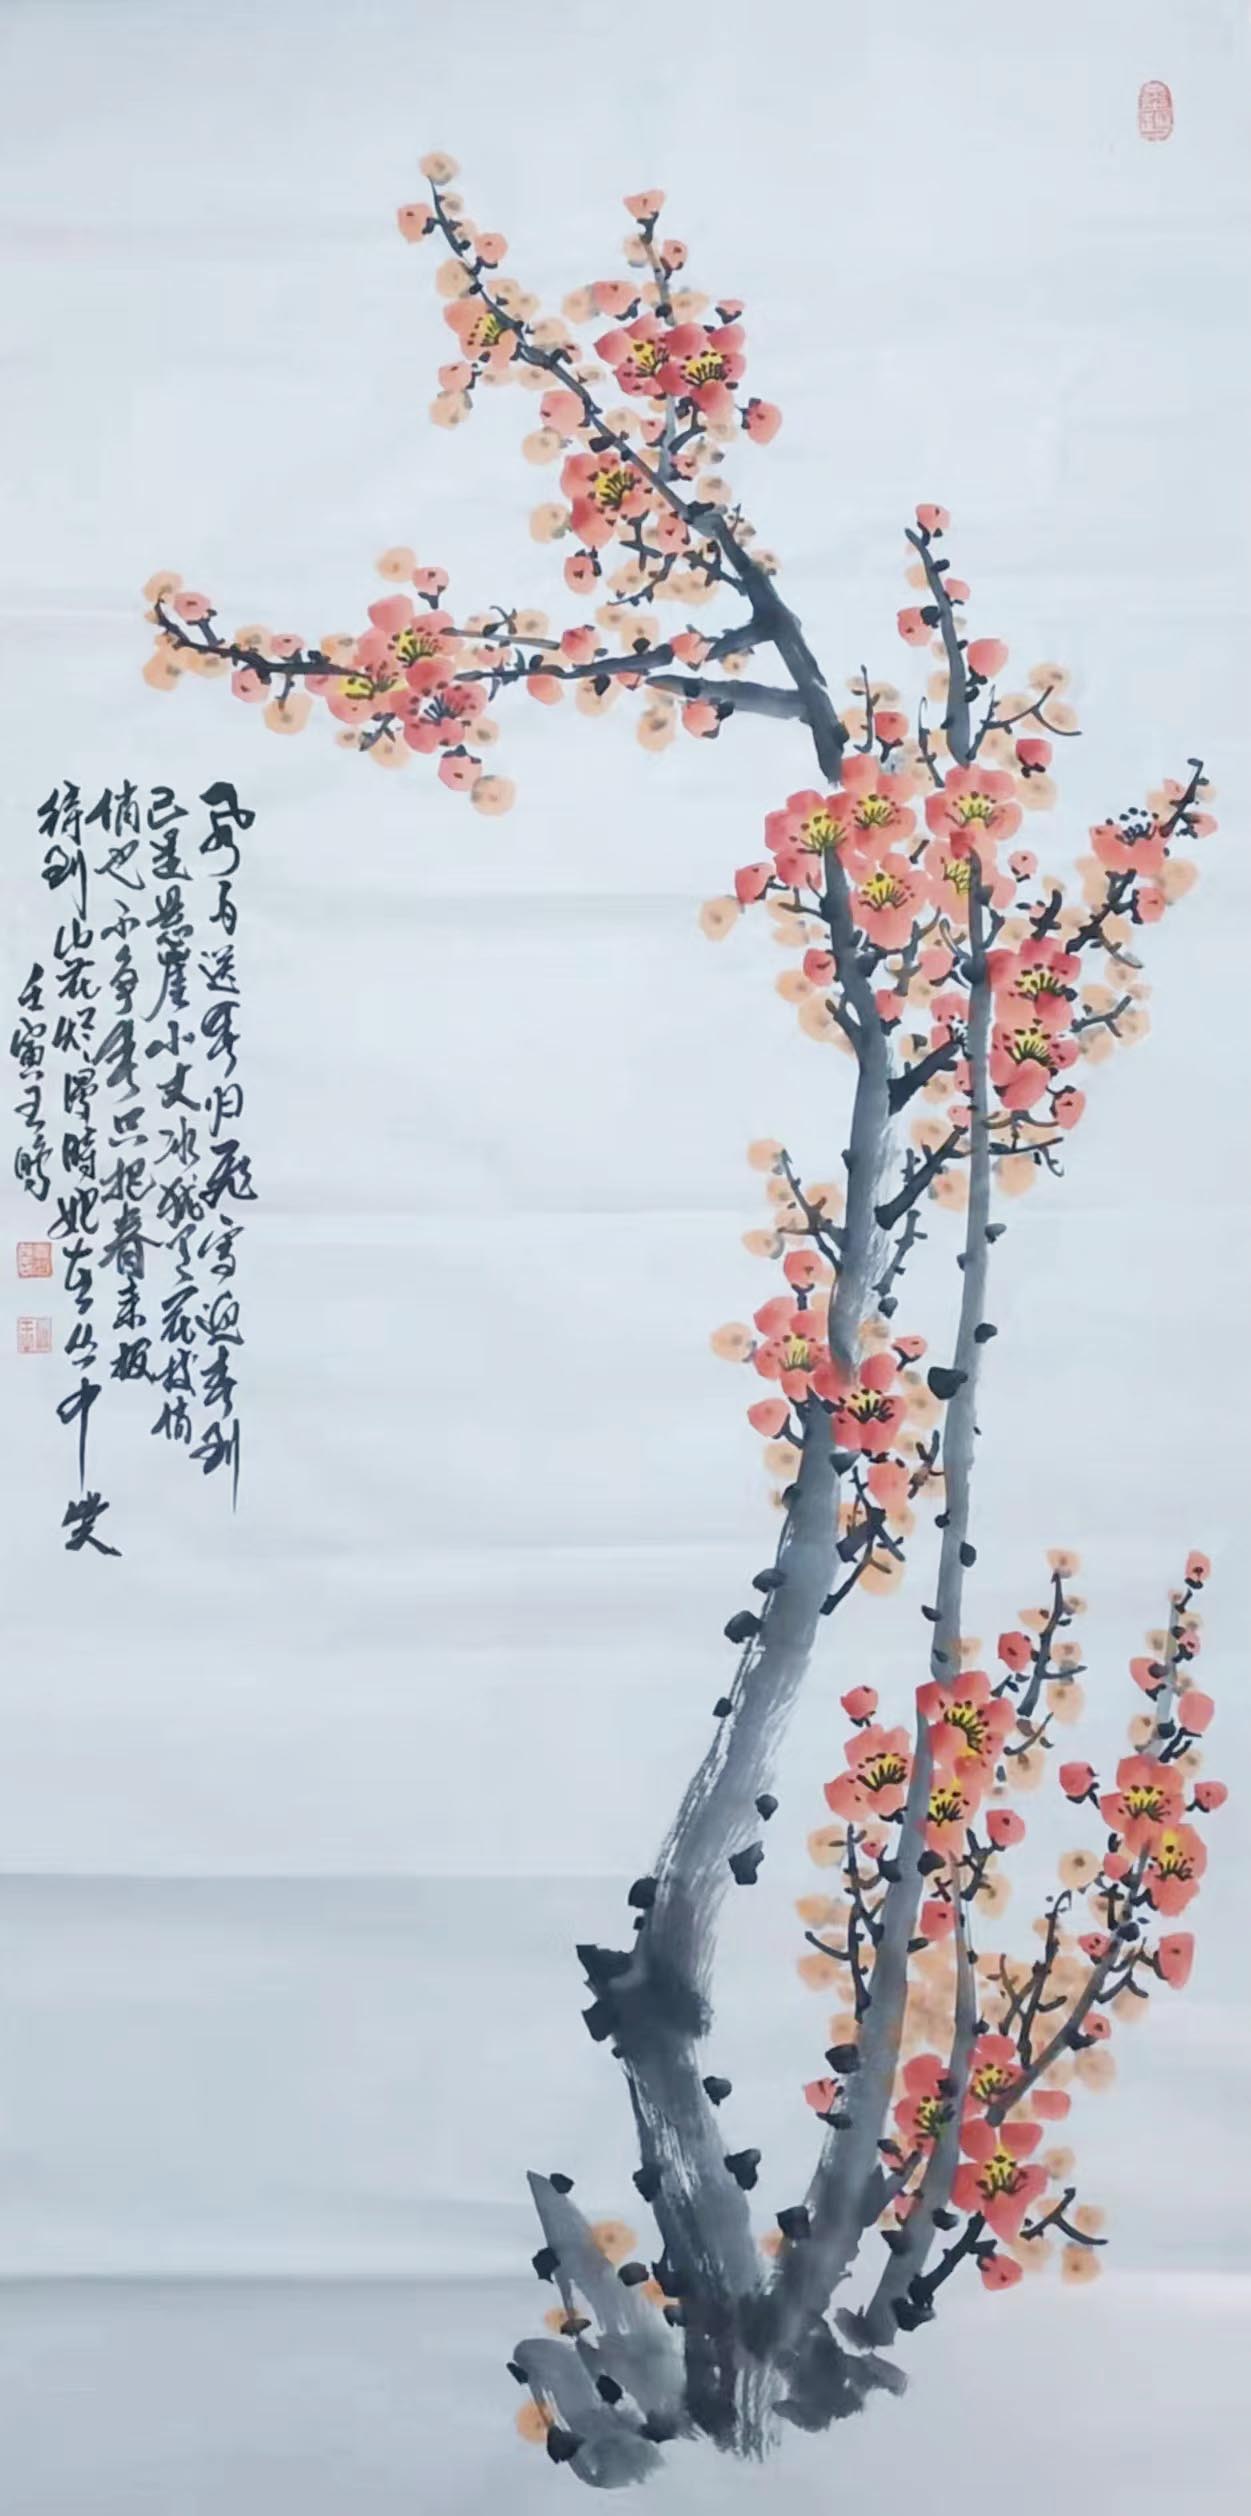 风雨送春归飞雪迎春到
已是悬崖百丈冰犹有花枝俏
俏也不争春只把春来报
待到山花烂漫时她在丛中笑
壬寅王